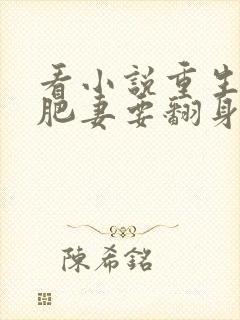 看小說重生
肥妻要翻身
陳希銘